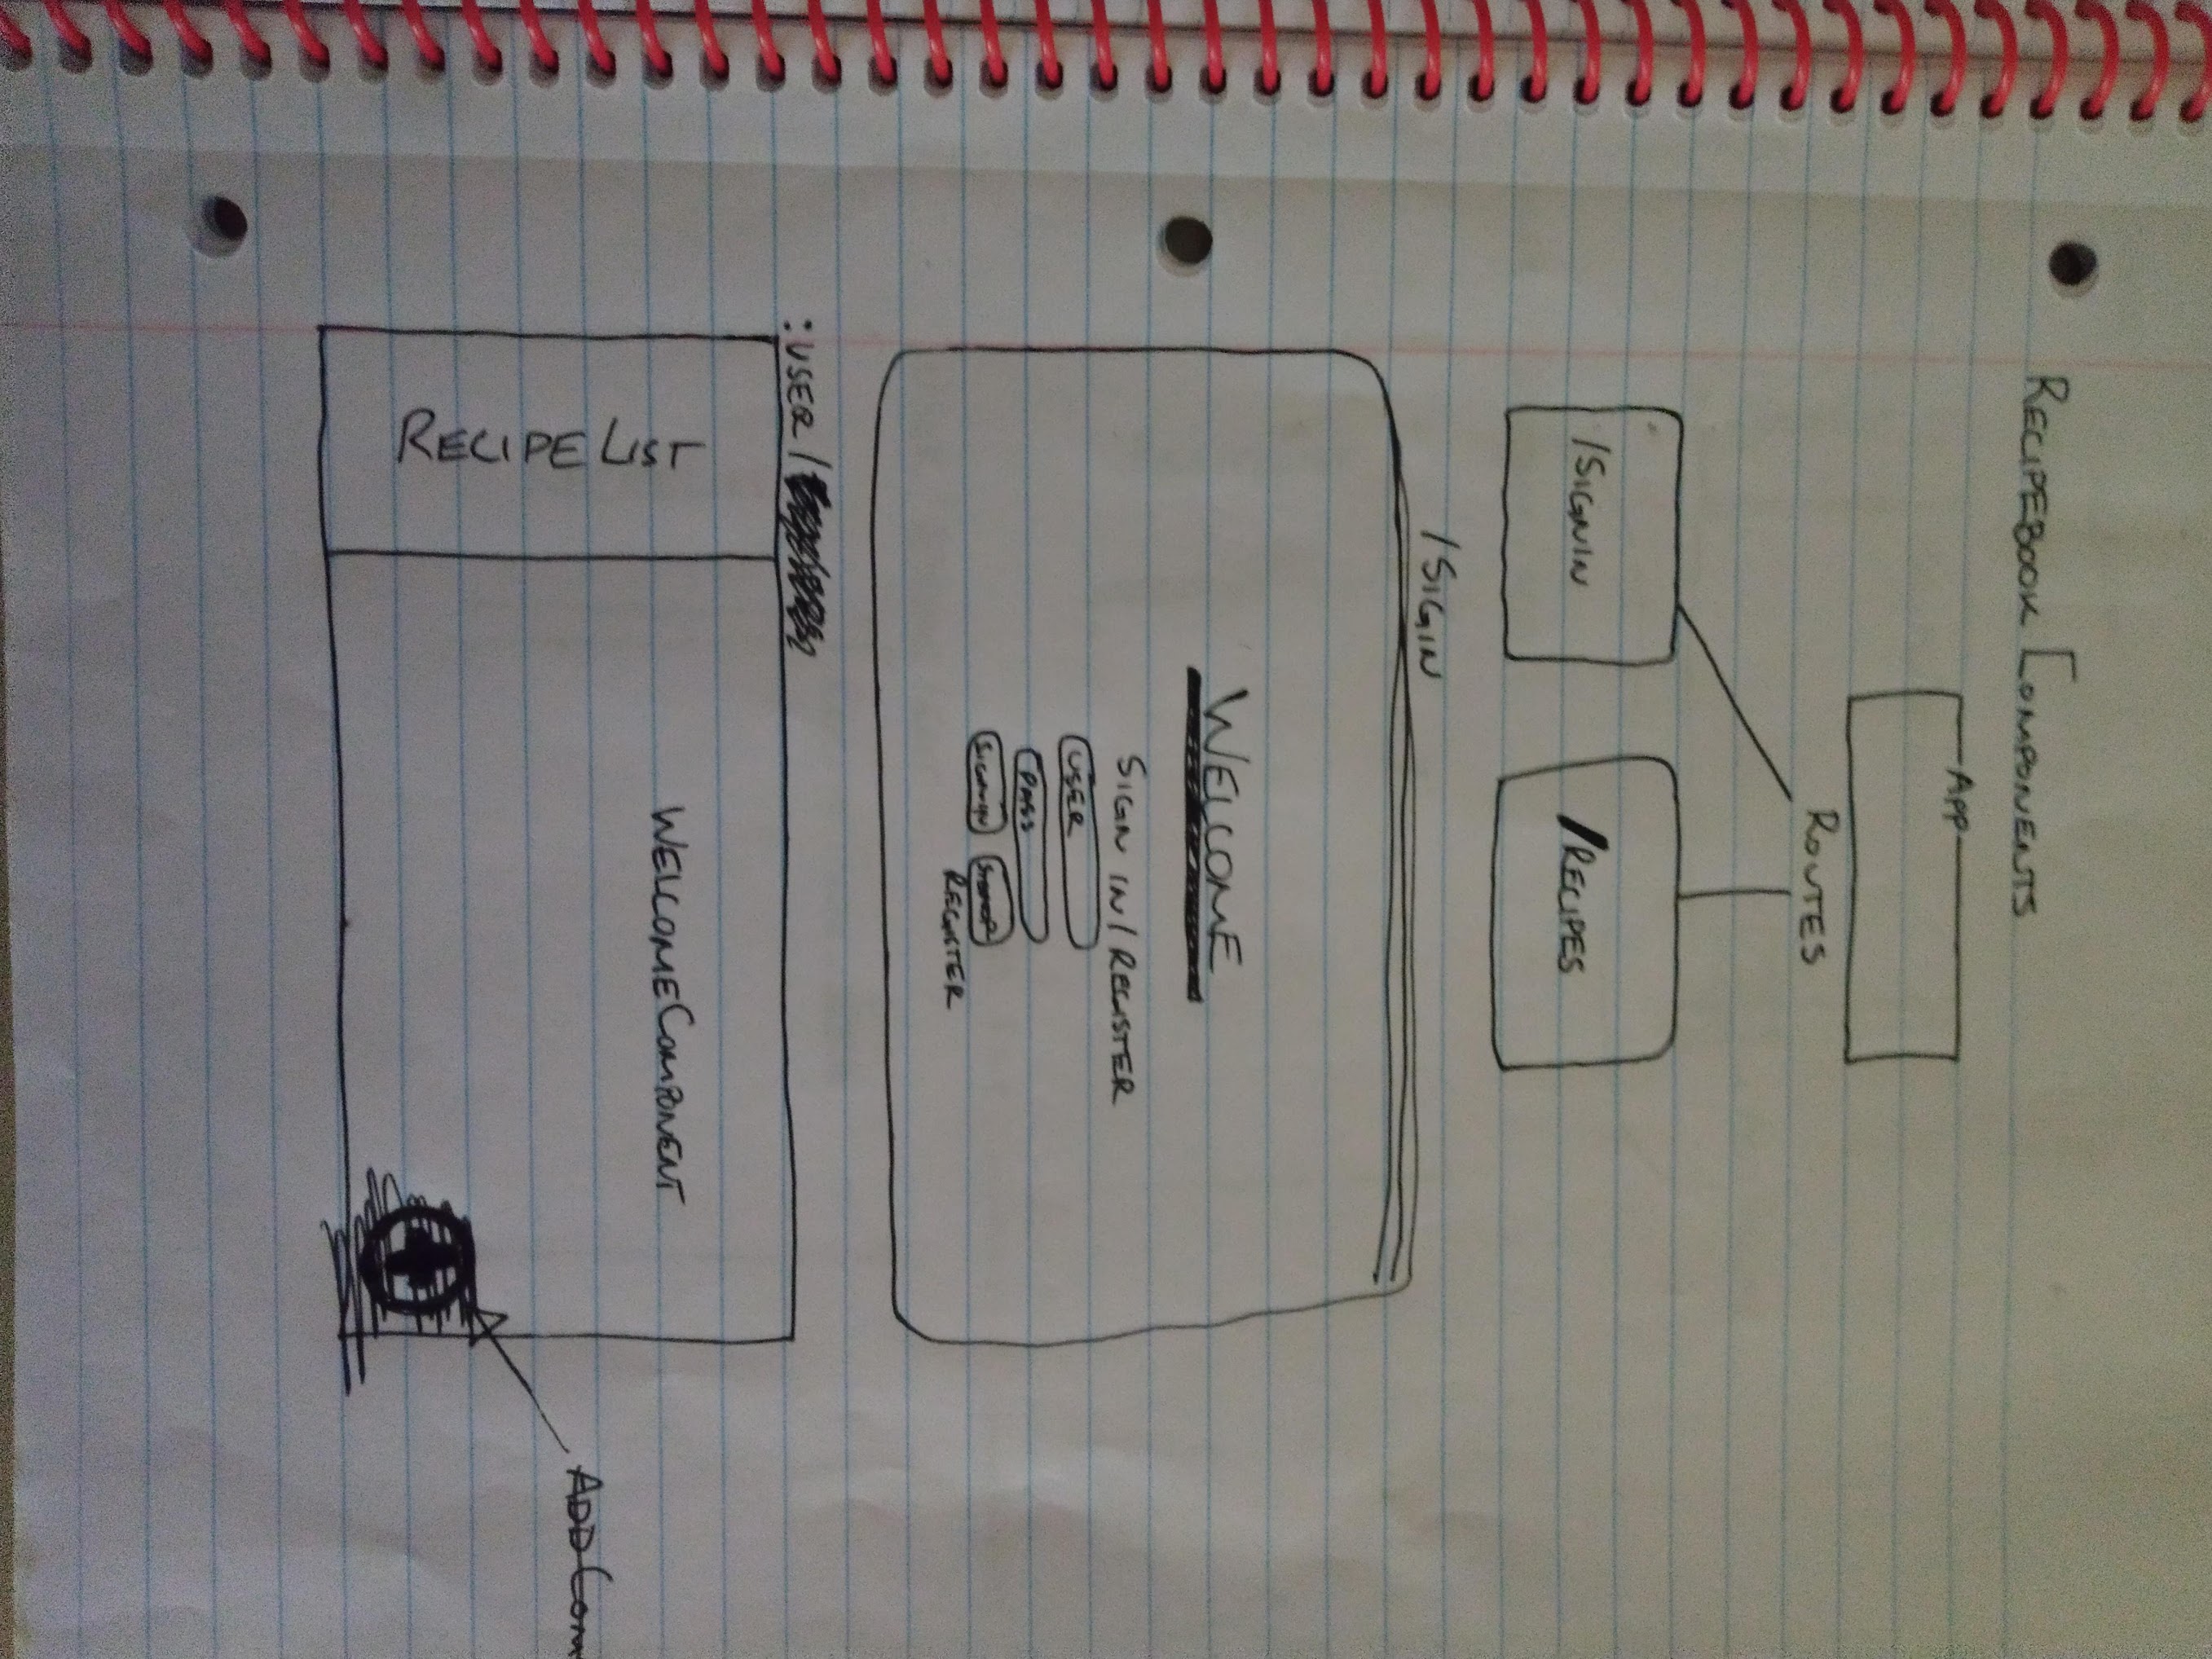 RECIPEBOOK COMPONENTS
APP
ROUTES
/SIGNIN
/RECIPES
/SIGIN
WELCOME
SIGN IN/REGISTER
USER
PASS
SIGNIN
REGISTER
:USER/
RECIPE LIST
WELCOMECOMPONENT
ADDCOM